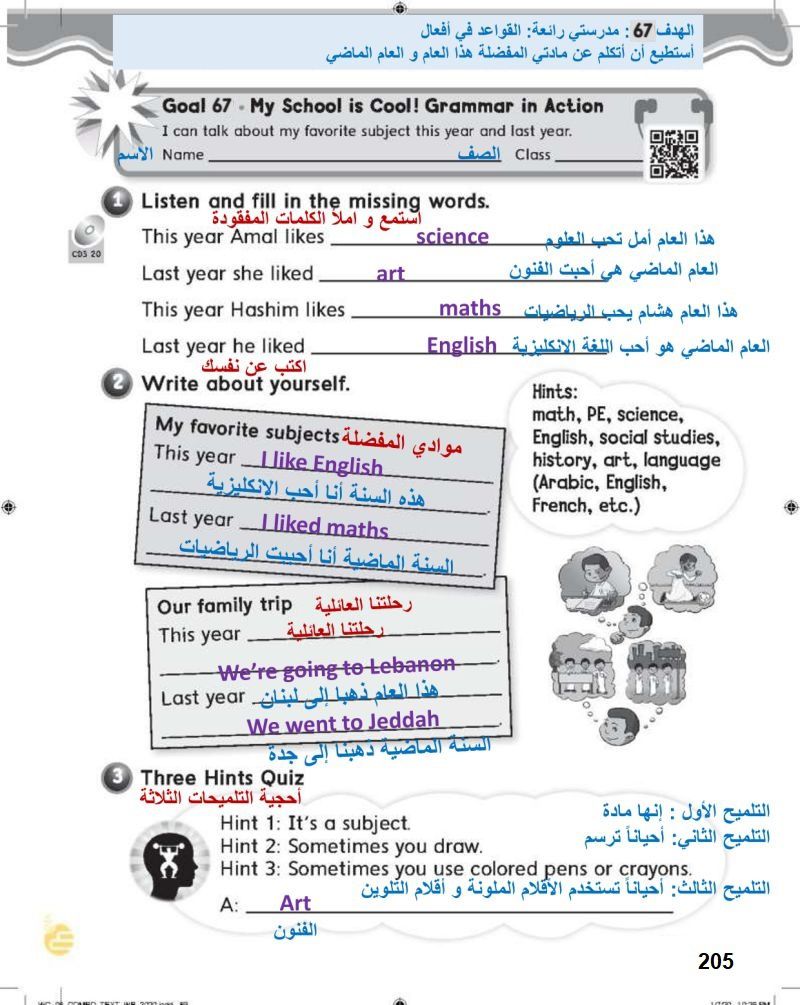 الهدف 67 : مدرستي رائعة: القواعد في أفعال
أستطيع أن أتكلم عن مادتي المفضلة هذا العام و العام الماضي
Goal 67 • My School is Cool! Grammar in Action
I can talk about my favorite subject this year and last year.
الاسم Name الصف Class
1 Listen and fill in the missing words.
استمع و املأ الكلمات المفقودة
CD3 20
This year Amal likes science هذا العام أمل تحب العلوم
Last year she liked art العام الماضي هي أحبت الفنون
This year Hashim likes maths هذا العام هشام يحب الرياضيات
Last year he liked English العام الماضي هو أحب اللغة الانكليزية
اكتب عن نفسك
2 Write about yourself.
My favorite subjects موادي المفضلة
This year I like English
هذه السنة أنا أحب الانكليزية
Last year I liked maths
السنة الماضية أنا أحببت الرياضيات
Hints:
math, PE, science,
English, social studies,
history, art, language
(Arabic, English,
French, etc.)
Our family trip رحلتنا العائلية
This year رحلتنا العائلية
We're going to Lebanon
Last year هذا العام ذهبا إلى لبنان
We went to Jeddah
السنة الماضية ذهبنا إلى جدة
3 Three Hints Quiz
أحجية التلميحات الثلاثة
Hint 1: It's a subject. التلميح الأول : إنها مادة
Hint 2: Sometimes you draw. التلميح الثاني: أحياناً ترسم
Hint 3: Sometimes you use colored pens or crayons.
التلميح الثالث: أحياناً تستخدم الأقلام الملونة و أقلام التلوين
A: Art
الفنون
205